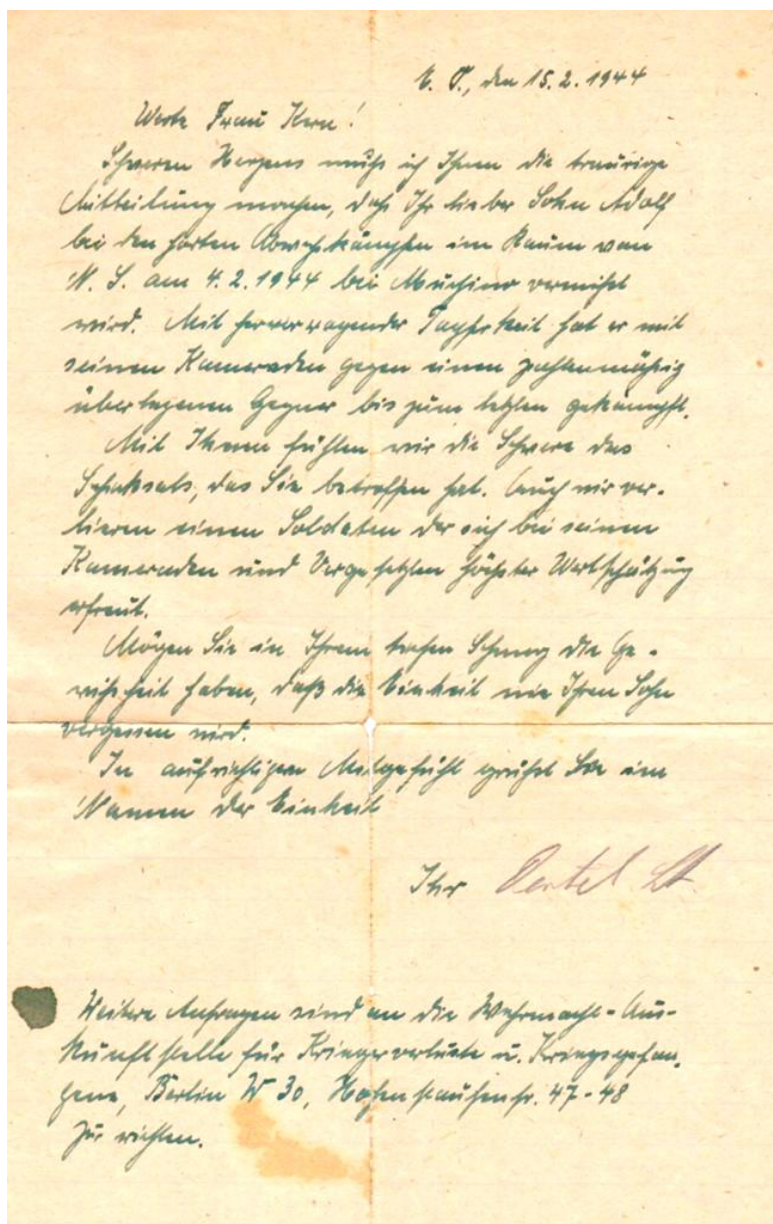 K. O., den 15.2.1944
Werte Frau Kern!
Schweren Herzens muß ich Ihnen die traurige
Mitteilung machen, daß Ihr lieber Sohn Adolf
bei den harten Abwehrkämpfen im Raum von
N. S. am 4.2.1944 bei Muchino vermißt
wird. Mit hervorragender Tapferkeit hat er mit
seinen Kameraden gegen einen zahlenmäßig
überlegenen Gegner bis zum letzten gekämpft.
Mit Ihnen fühlen wir die Schwere des
Schicksals, das Sie betroffen hat. Auch wir ver-
lieren einen Soldaten der sich bei seinen
Kameraden und Vorgesetzten höchster Wertschätzung
erfreut.
Mögen Sie in Ihrem tiefen Schmerz die Ge-
wißheit haben, daß die Einheit nie Ihren Sohn
vergessen wird.
In aufrichtigem Mitgefühl grüßt Sie im
Namen der Einheit
Ihr Oertel Lt.
Weitere Anfragen sind an die Wehrmacht-Aus-
kunftstelle für Kriegerverluste u. Kriegsgefan-
gene, Berlin W 30, Hohenstaufenstr. 47-48
zu richten.